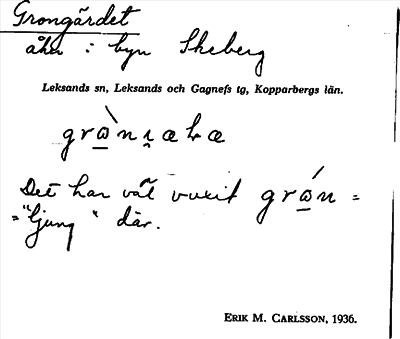 Grongärdet
åker i byn Skeberg
Leksands sn, Leksands och Gagnefs tg, Kopparbergs län.
Det har väl vuxit
= "ljung" där.
ERIK M. CARLSSON, 1936.